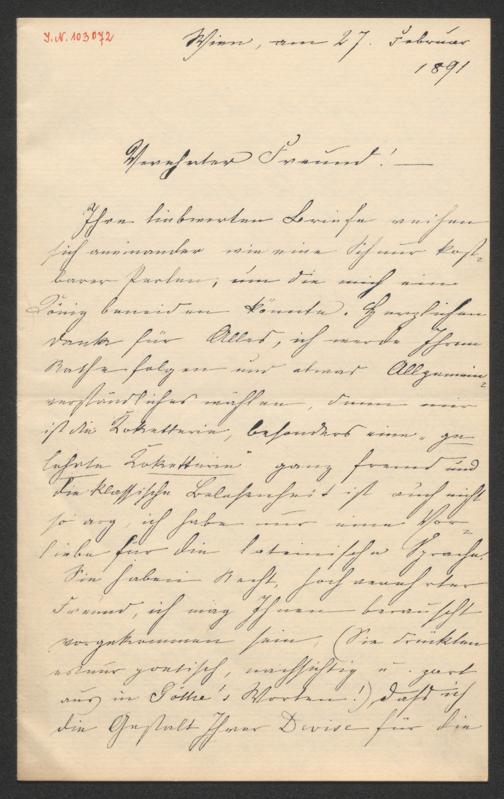 J.N. 103072
Wien, am 27. Februar
1891
Verehrter Freund! —
Ihre liebwerten Briefe reihen
sich aneinander wie eine Schnur kost-
barer Perlen, um die mich ein
König beneiden könnte. Herzlichen
Dank für Alles, ich werde Ihrem
Rathe folgen und etwas Allgemein-
verständliches wählen, denn mir
ist die Koketterie, besonders eine „ge
lehrte Koketterie" ganz fremd und
die klassische Belesenheit ist auch nicht
so arg, ich habe nur eine Vor-
liebe für die lateinische Sprache.
Sie haben Recht, hochverehrter
Freund, ich mag Ihnen berauscht
vorgekommen sein, (Sie drückten
es nur poetisch, nachsichtig u. zart
aus in Göthe's Worten!) daß ich
die Gestalt Ihrer Devise für die